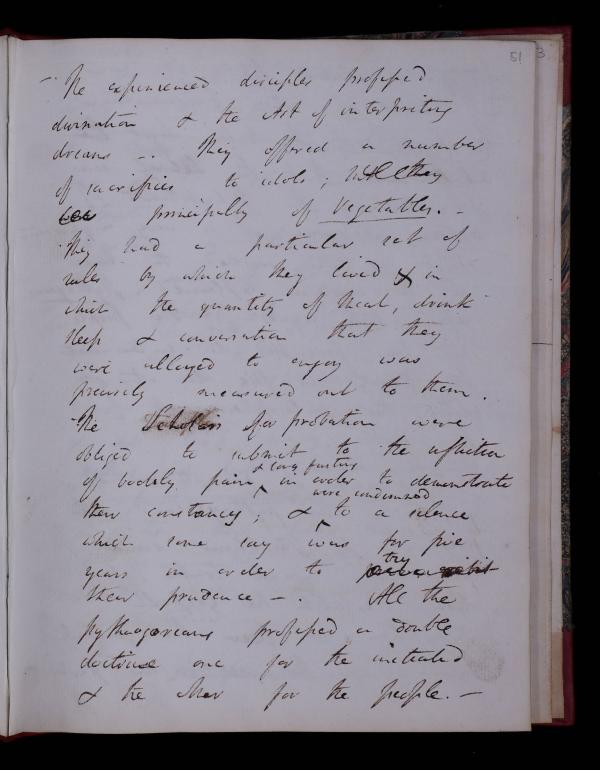 51 3
"The experienced disciples professed
divination & the Art of interpreting
dreams –. They offered a number
of sacrifices to idols; they
principally of Vegetables. –
They had a particular set of
rules by which they lived & in
which the quantity of Meat, drink
sleep & conversation that they
were allowed to enjoy was
precisely measured out to them.
"The Scholars for probation were
obliged to submit to the infliction
of bodily pain & long fasting in order to demonstrate
their constancy; & were condemned to a silence
which some say was for five
years in order to try
their prudence –. All the
pythagoreans professed a double
doctrine one for the initiated
& the other for the people. –